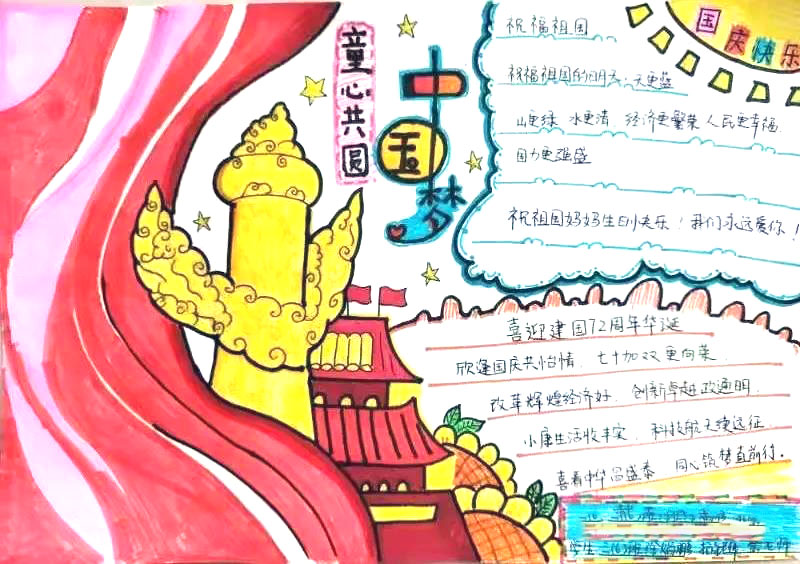 童心共圆
中国梦
国庆快乐
祝福祖国
祝福祖国的明天：天更蓝
山更绿 水更清 经济更繁荣 人民更幸福
国力更强盛
祝祖国妈妈生日快乐！我们永远爱你！
喜迎建国72周年华诞
欣逢国庆共怡情，七十加双更向荣。
改革辉煌经济好，创新卓越政通明。
小康生活收丰实，科技航天续远征。
喜看中华昌盛泰，同心筑梦直前行。
学生